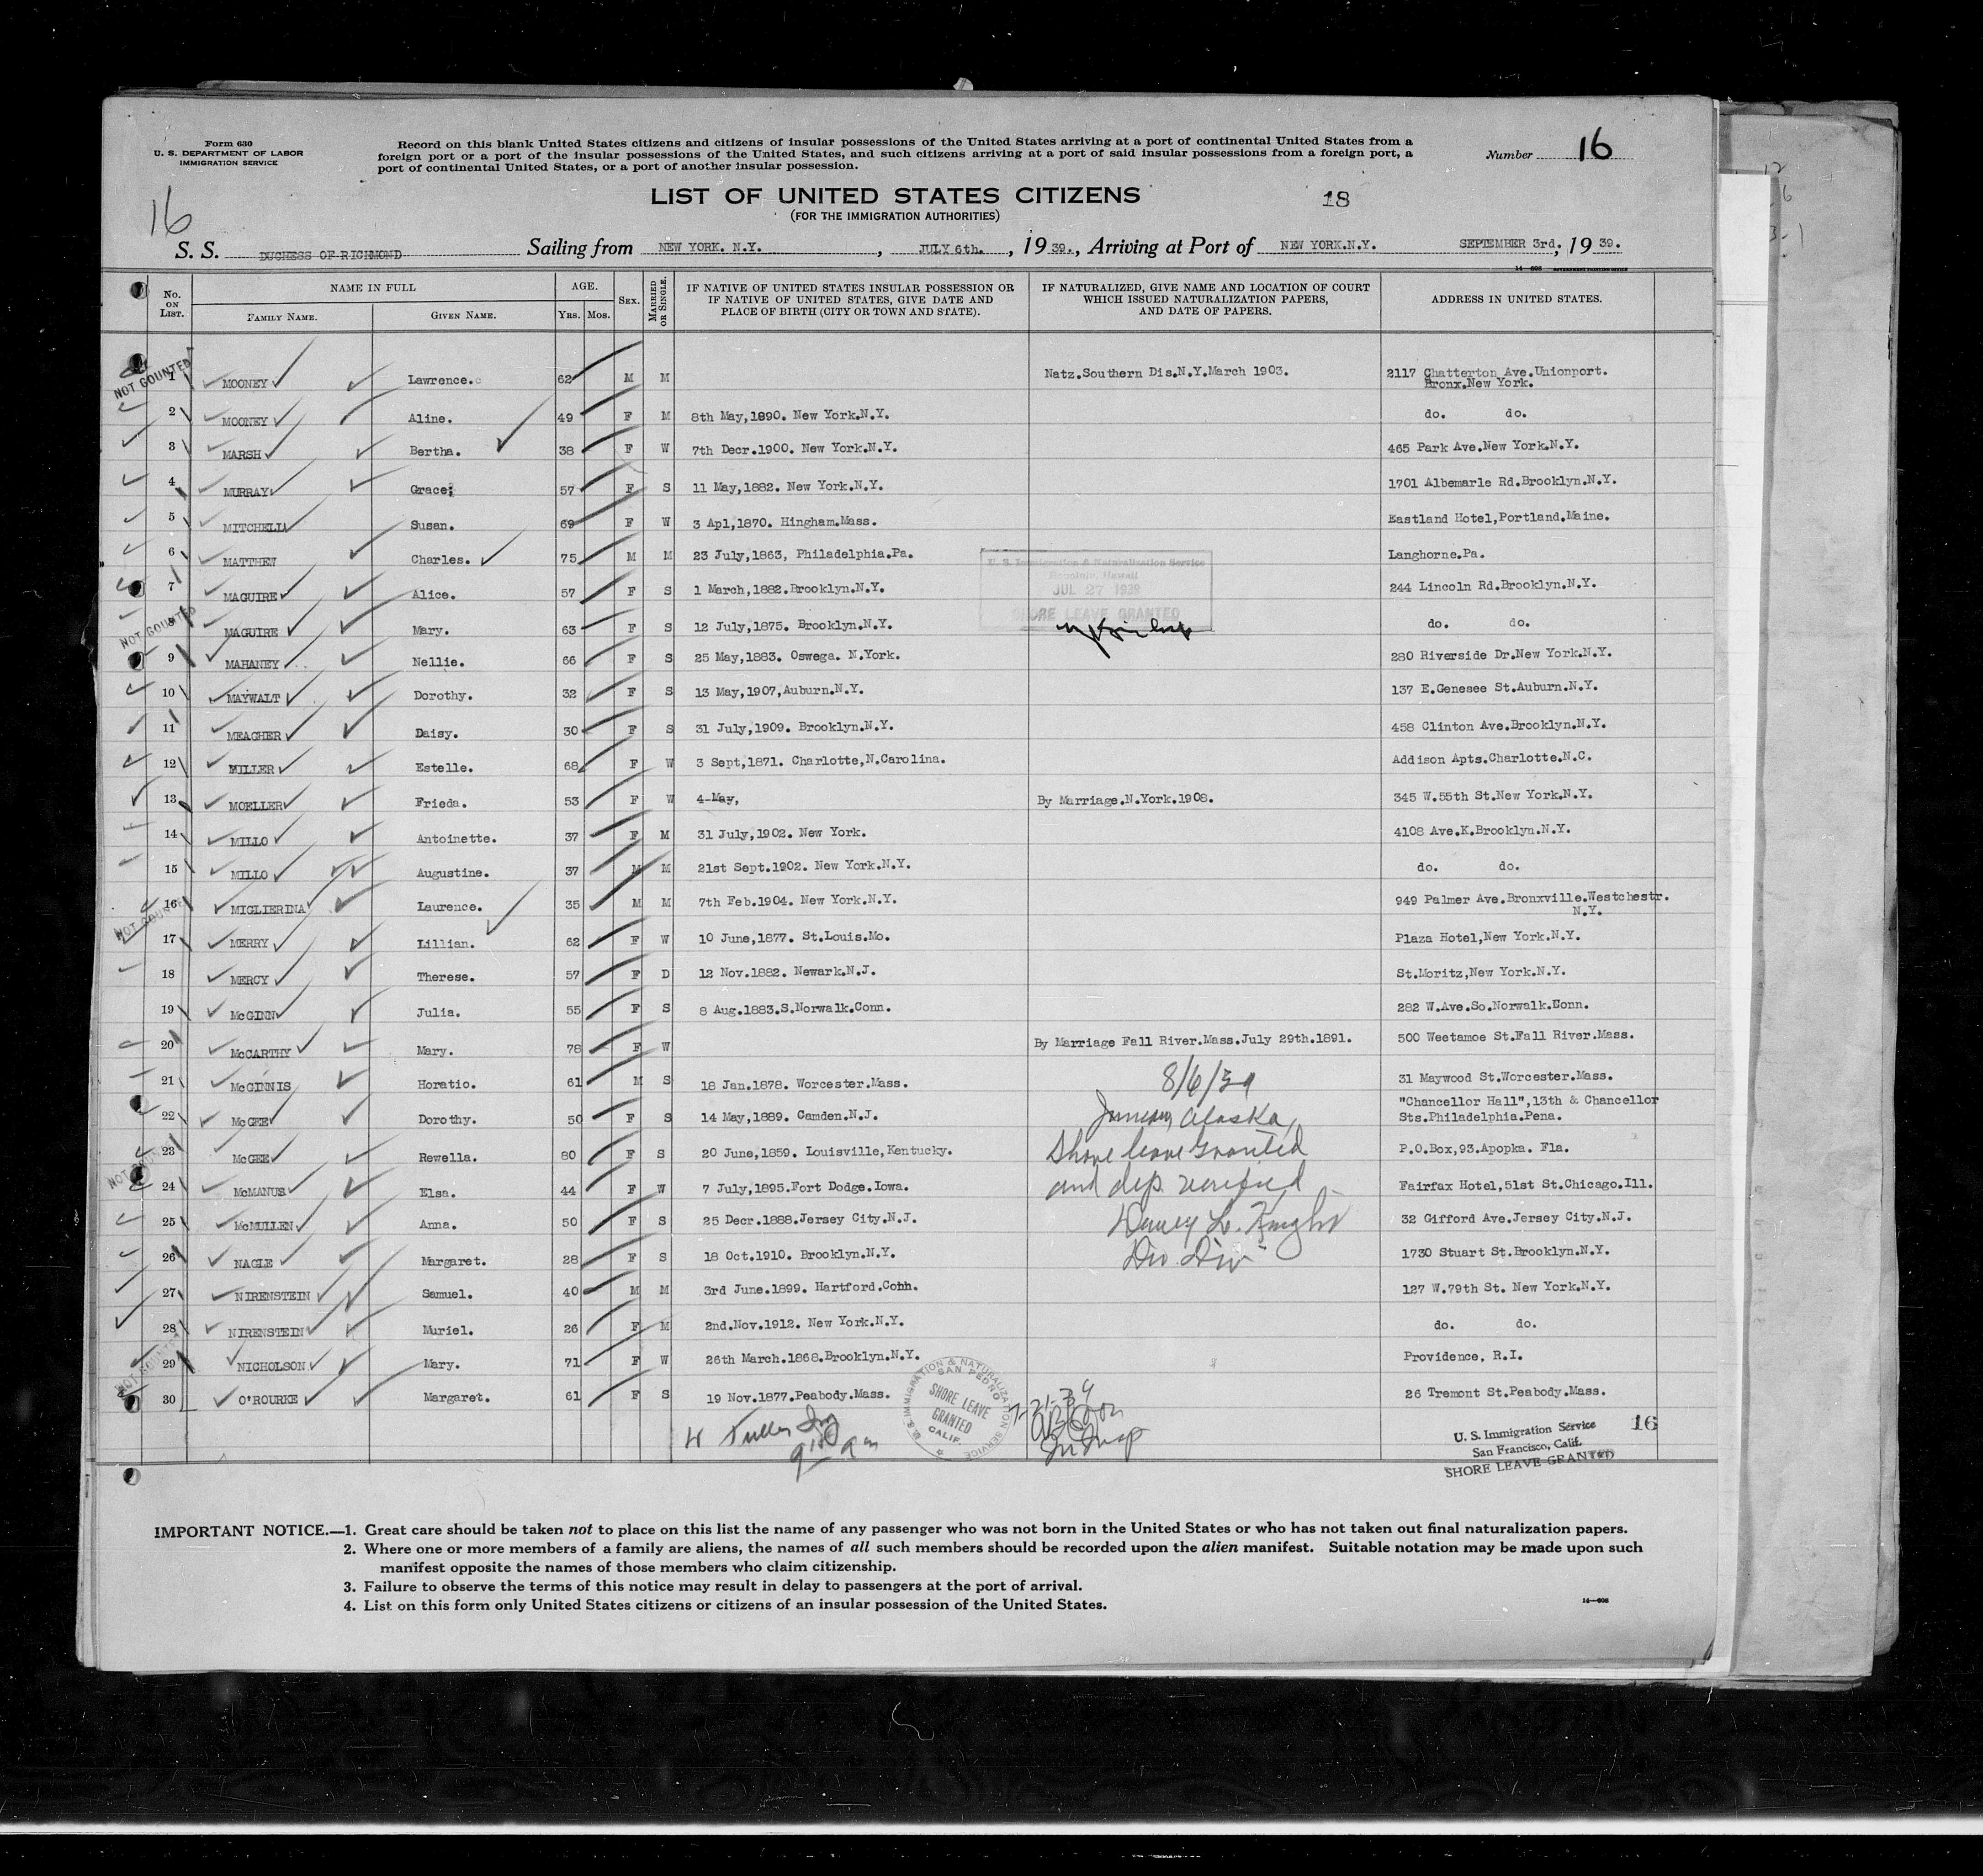 Form 630
U. S. DEPARTMENT OF LABOR
IMMIGRATION SERVICE
Record on this blank United States citizens and citizens of insular possessions of the United States arriving at a port of continental United States from a
foreign port or a port of the insular possessions of the United States, and such citizens arriving at a port of said insular possessions from a foreign port, a
port of continental United States, or a port of another insular possession.
Number 16
LIST OF UNITED STATES CITIZENS
(FOR THE IMMIGRATION AUTHORITIES)
18
16
S. S. DUCHESS OF RICHMOND Sailing from NEW YORK. N.Y. , JULY 6th. , 19 39. , Arriving at Port of NEW YORK.N.Y. SEPTEMBER 3rd. , 19 39.
14—608 GOVERNMENT PRINTING OFFICE
No. ON LIST. NAME IN FULL FAMILY NAME. GIVEN NAME. AGE. Yrs. Mos. SEX. MARRIED OR SINGLE. IF NATIVE OF UNITED STATES INSULAR POSSESSION OR IF NATIVE OF UNITED STATES, GIVE DATE AND PLACE OF BIRTH (CITY OR TOWN AND STATE). IF NATURALIZED, GIVE NAME AND LOCATION OF COURT WHICH ISSUED NATURALIZATION PAPERS, AND DATE OF PAPERS. ADDRESS IN UNITED STATES.
NOT COUNTED
1 MOONEY Lawrence. 62 M M Natz.Southern Dis.N.Y.March 1903. 2117 Chatterton Ave.Unionport.
Bronx.New York.
2 MOONEY Aline. 49 F M 8th May,1890. New York.N.Y. do. do.
3 MARSH Bertha. 38 F W 7th Decr.1900. New York.N.Y. 465 Park Ave.New York.N.Y.
4 MURRAY Grace; 57 F S 11 May,1882. New York.N.Y. 1701 Albemarle Rd.Brooklyn.N.Y.
5 MITCHELL Susan. 69 F W 3 Apl,1870. Hingham.Mass. Eastland Hotel,Portland.Maine.
6 MATTHEW Charles. 75 M M 23 July,1863, Philadelphia.Pa. Langhorne.Pa.
U. S. Immigration & Naturalization Service
Honolulu, Hawaii
JUL 27 1939
SHORE LEAVE GRANTED
7 MAGUIRE Alice. 57 F S 1 March,1882.Brooklyn.N.Y. 244 Lincoln Rd.Brooklyn.N.Y.
NOT COUNTED
8 MAGUIRE Mary. 63 F S 12 July,1875. Brooklyn.N.Y. do. do.
9 MAHANEY Nellie. 66 F S 25 May,1883. Oswega. N.York. 280 Riverside Dr.New York.N.Y.
10 MAYWALT Dorothy. 32 F S 13 May,1907,Auburn.N.Y. 137 E.Genesee St.Auburn.N.Y.
11 MEAGHER Daisy. 30 F S 31 July,1909. Brooklyn.N.Y. 458 Clinton Ave.Brooklyn.N.Y.
12 MILLER Estelle. 68 F W 3 Sept,1871. Charlotte,N.Carolina. Addison Apts.Charlotte.N.C.
13 MOELLER Frieda. 53 F W 4-May, By Marriage.N.York.1908. 345 W.55th St.New York.N.Y.
14 MILLO Antoinette. 37 F M 31 July,1902. New York. 4108 Ave.K.Brooklyn.N.Y.
15 MILLO Augustine. 37 M M 21st Sept.1902. New York.N.Y. do. do.
16 MIGLIERINA Laurence. 35 M M 7th Feb.1904. New York.N.Y. 949 Palmer Ave.Bronxville.Westchestr.
N.Y.
NOT COUNTED
17 MERRY Lillian. 62 F W 10 June,1877. St.Louis.Mo. Plaza Hotel,New York.N.Y.
18 MERCY Therese. 57 F D 12 Nov.1882. Newark.N.J. St.Moritz,New York.N.Y.
19 McGINN Julia. 55 F S 8 Aug.1883.S.Norwalk.Conn. 282 W.Ave.So.Norwalk.Conn.
20 McCARTHY Mary. 78 F W By Marriage Fall River.Mass.July 29th.1891. 500 Weetamoe St.Fall River.Mass.
21 McGINNIS Horatio. 61 M S 18 Jan.1878. Worcester.Mass. 31 Maywood St.Worcester.Mass.
8/6/39
22 McGEE Dorothy. 50 F S 14 May,1889. Camden.N.J. "Chancellor Hall",13th & Chancellor
Sts.Philadelphia.Pena.
Juneau, Alaska,
23 McGEE Rewella. 80 F S 20 June,1859. Louisville,Kentucky. P.O.Box,93.Apopka. Fla.
Shore leave granted
NOT COUNTED
24 McMANUS Elsa. 44 F W 7 July,1895.Fort Dodge.Iowa. Fairfax Hotel,51st St.Chicago.Ill.
and dep. verified
25 McMULLEN Anna. 50 F S 25 Decr.1888.Jersey City.N.J. 32 Gifford Ave.Jersey City.N.J.
26 NAGLE Margaret. 28 F S 18 Oct.1910. Brooklyn.N.Y. 1730 Stuart St.Brooklyn.N.Y.
27 NIRENSTEIN Samuel. 40 M M 3rd June.1899. Hartford.Conn. 127 W.79th St. New York.N.Y.
28 NIRENSTEIN Muriel. 26 F M 2nd.Nov.1912. New York.N.Y. do. do.
NOT COUNTED
29 NICHOLSON Mary. 71 F W 26th March.1868.Brooklyn.N.Y. Providence, R.I.
30 O'ROURKE Margaret. 61 F S 19 Nov.1877.Peabody.Mass. 26 Tremont St.Peabody.Mass.
U.S. IMMIGRATION & NATURALIZATION SERVICE
SAN PEDRO
SHORE LEAVE
GRANTED
CALIF.
7-21-39
U. S. Immigration Service
San Francisco, Calif.
SHORE LEAVE GRANTED
16
IMPORTANT NOTICE.—1. Great care should be taken not to place on this list the name of any passenger who was not born in the United States or who has not taken out final naturalization papers.
2. Where one or more members of a family are aliens, the names of all such members should be recorded upon the alien manifest. Suitable notation may be made upon such
manifest opposite the names of those members who claim citizenship.
3. Failure to observe the terms of this notice may result in delay to passengers at the port of arrival.
4. List on this form only United States citizens or citizens of an insular possession of the United States.
14—608